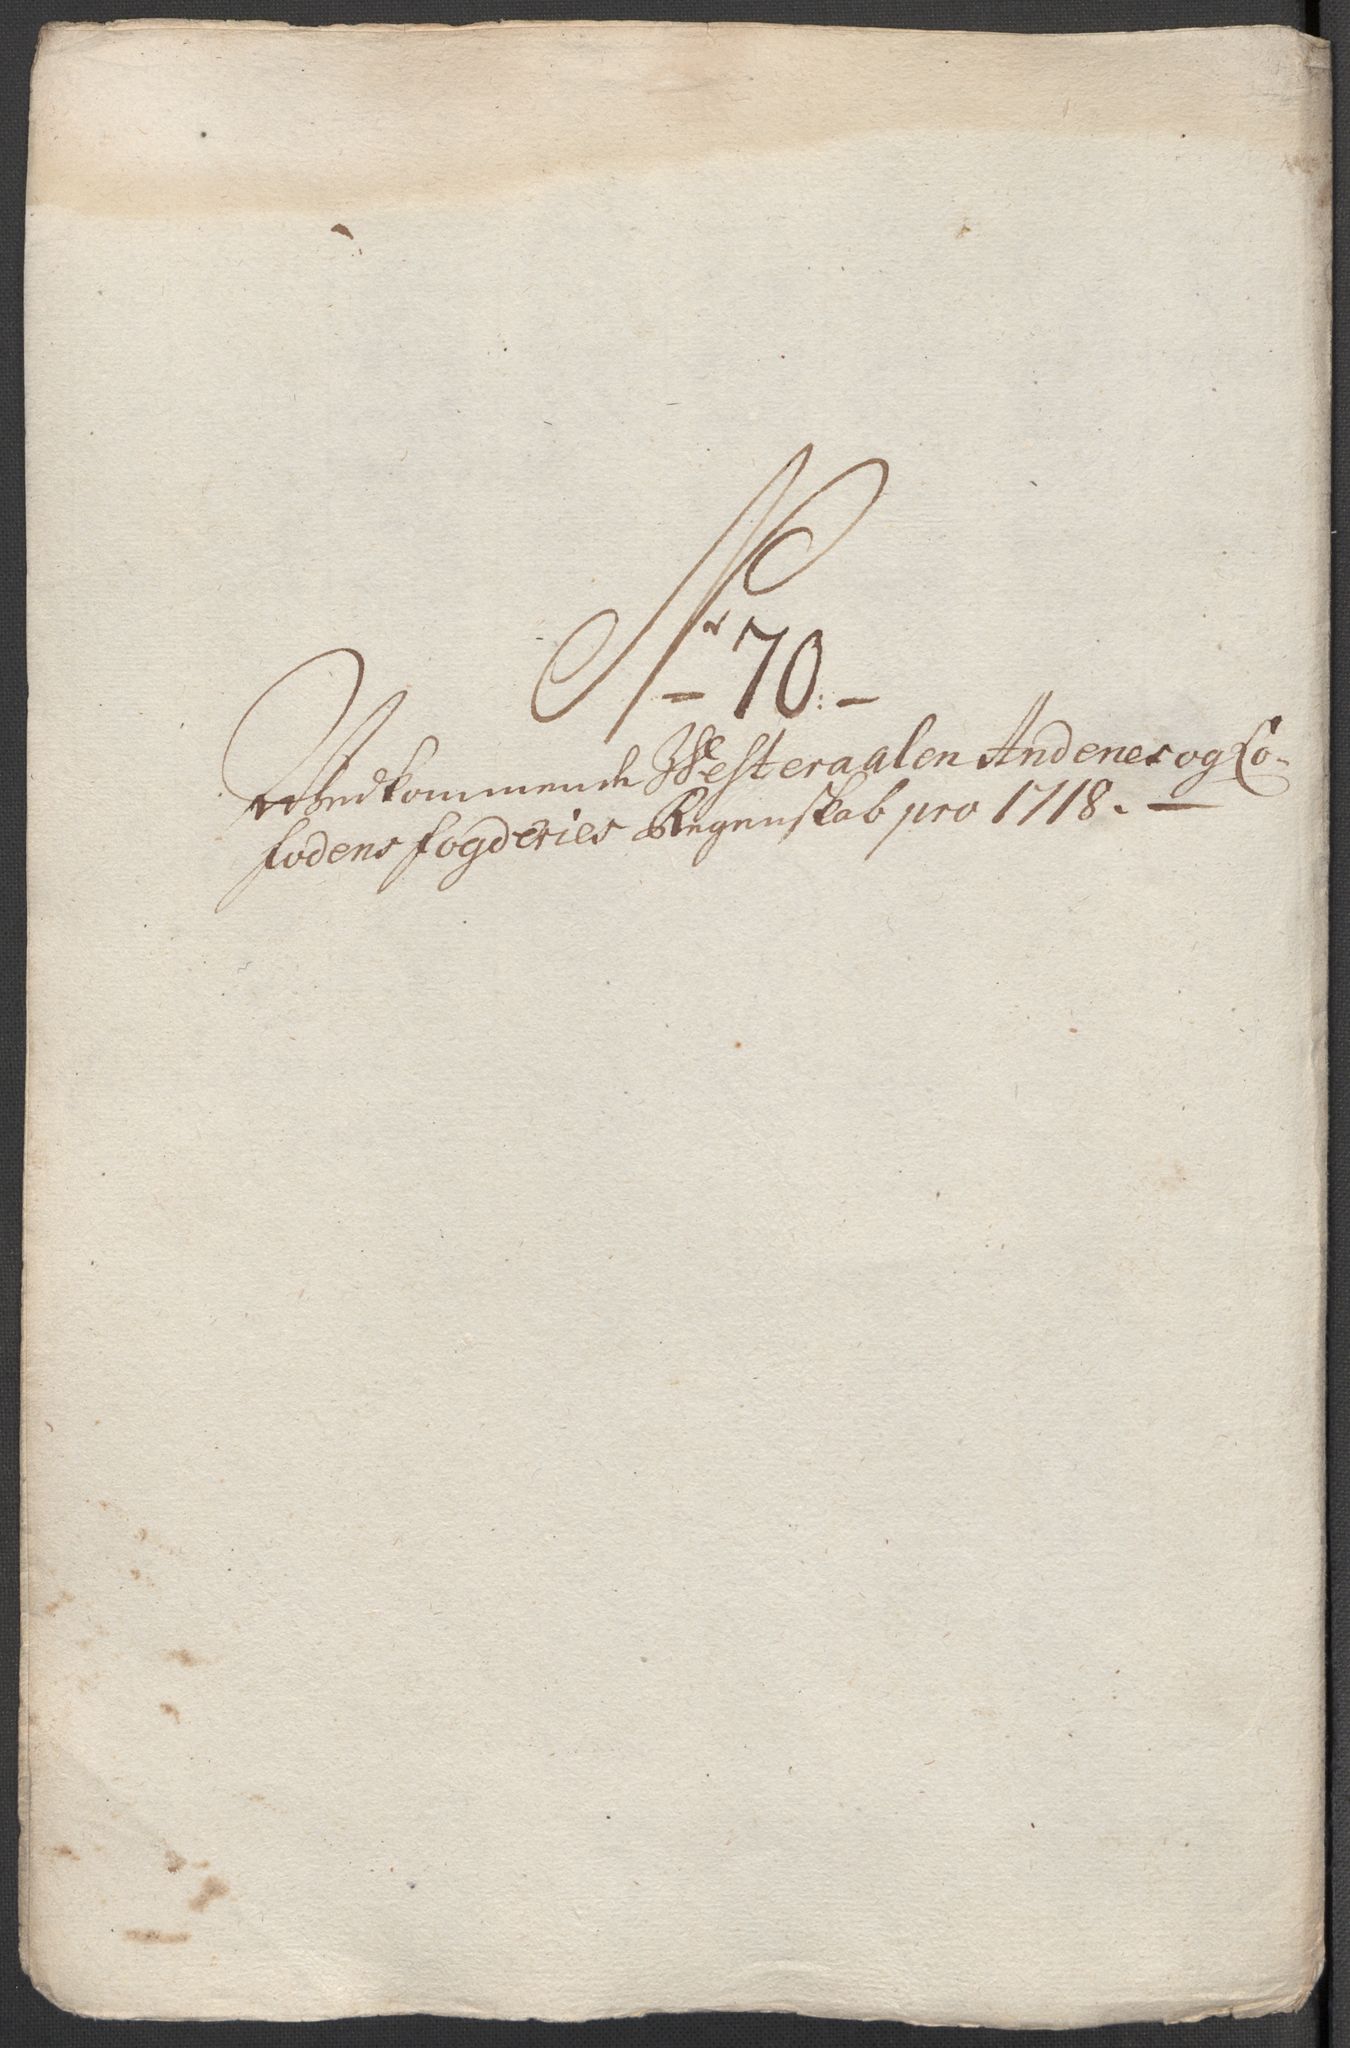 Nr 70:
Vedkommende Westeraalen Andenes og Lo-
fodens fogderies Regenskab pro 1718.